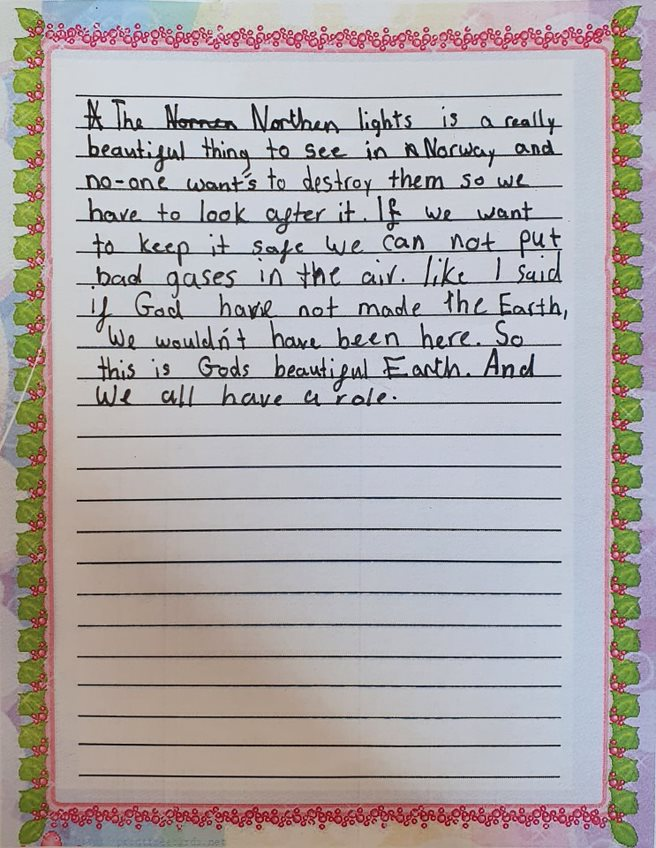 The Northen lights is a really
beautiful thing to see in Norway and
no-one want's to destroy them so we
have to look after it. If we want
to keep it safe we can not put
bad gases in the air. like I said
if God have not made the Earth,
We wouldn't have been here. So
this is Gods beautiful Earth. And
We all have a role.